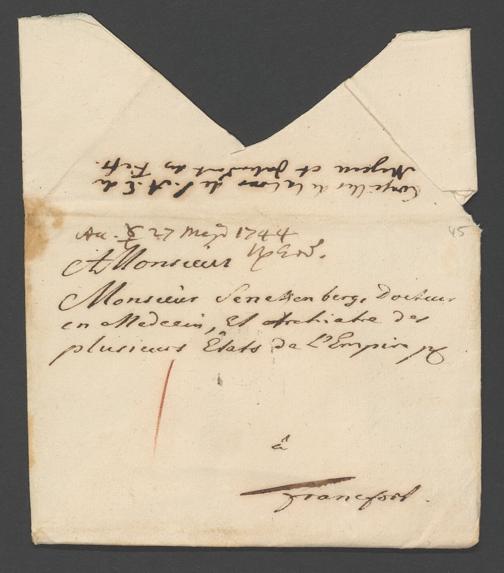 Conseiller de la cour de S. A. E. de
Mayence et Resident à Fcft.
45
27 May 1744
A Monsieur
Monsieur Senckenberg, Docteur
en Medecin, Et Archiatre des
plusieurs Etats de L'Empire
à
Francfort.